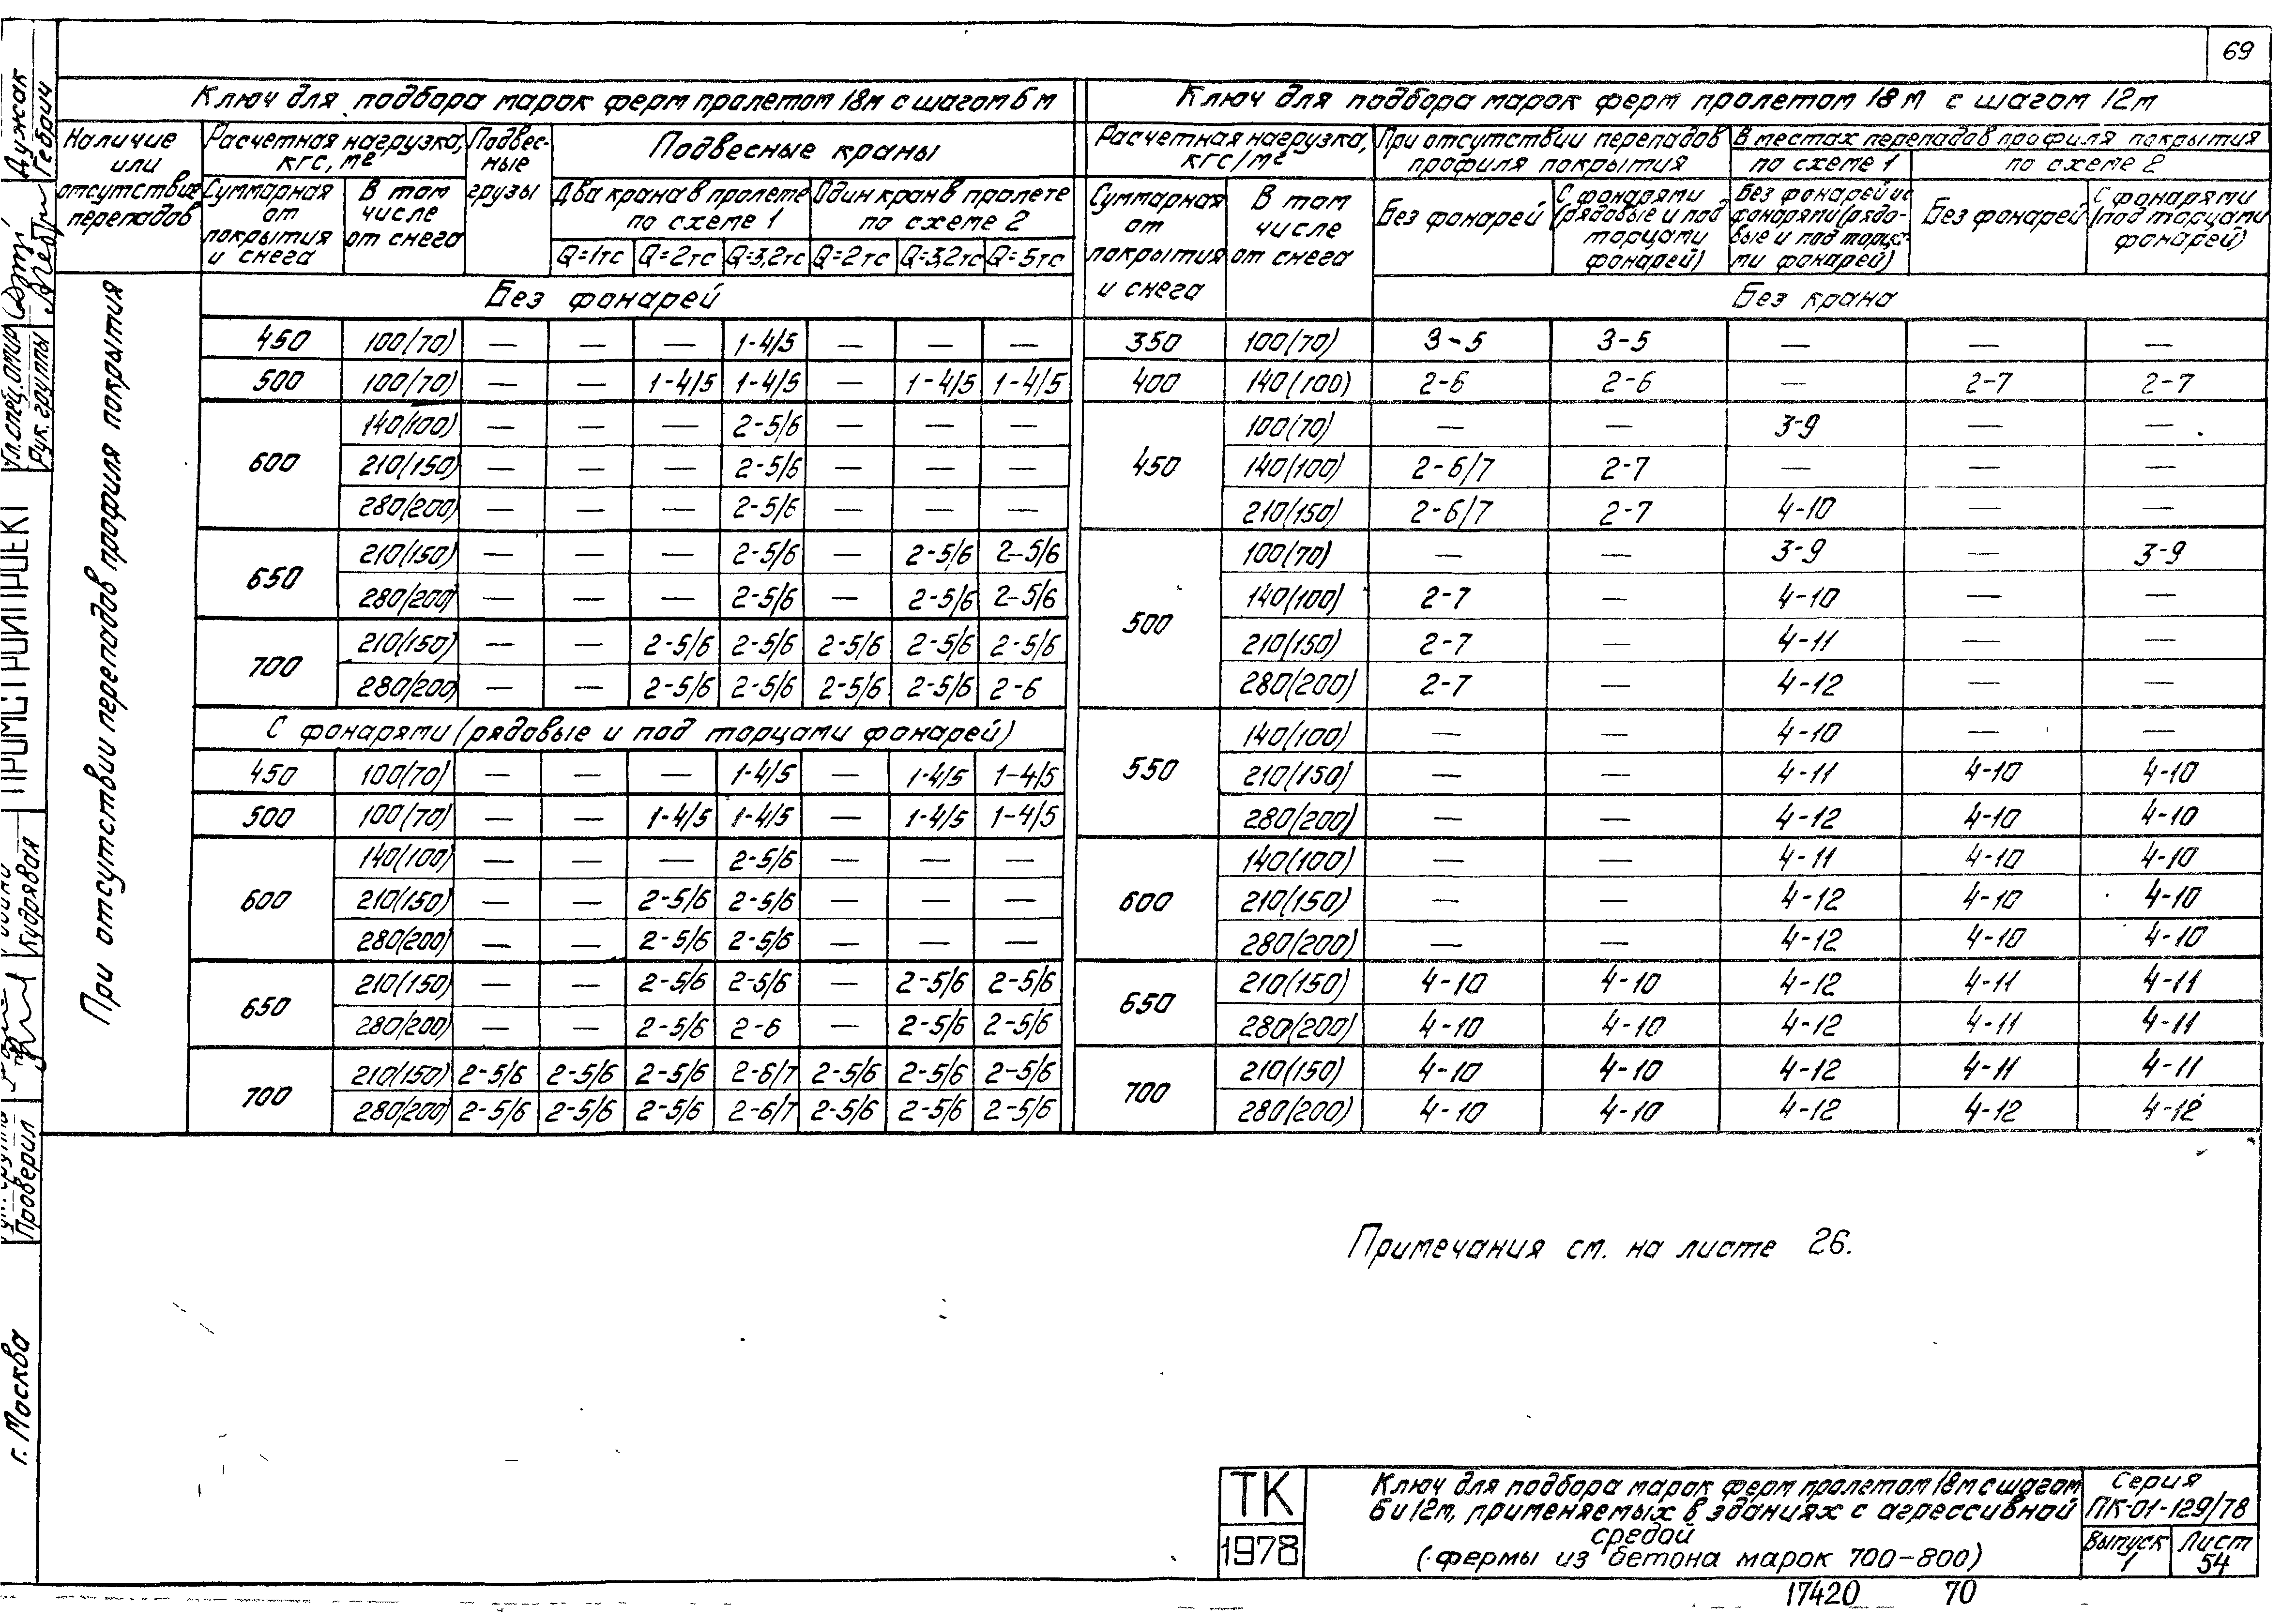 69
Ключ для подбора марок ферм пролетом 18м с шагом 6м
Наличие или отсутствие перепадов
Расчетная нагрузка, кгс, м²
Суммарная от покрытия и снега
В том числе от снега
Подвес-ные грузы
Подвесные краны
Два крана в пролете по схеме 1
Один кран в пролете по схеме 2
Q=1тс Q=2тс Q=3,2тс Q=2тс Q=3,2тс Q=5тс
При отсутствии перепадов профиля покрытия
Без фонарей
450 100(70) — — — 1-4/5 — — —
500 100(70) — — 1-4/5 1-4/5 — 1-4/5 1-4/5
600 140(100) — — — 2-5/6 — — —
210(150) — — — 2-5/6 — — —
280(200) — — — 2-5/6 — — —
650 210(150) — — — 2-5/6 — 2-5/6 2-5/6
280(200) — — — 2-5/6 — 2-5/6 2-5/6
700 210(150) — — 2-5/6 2-5/6 2-5/6 2-5/6 2-5/6
280(200) — — 2-5/6 2-5/6 2-5/6 2-5/6 2-6
С фонарями (рядовые и под торцами фонарей)
450 100(70) — — — 1-4/5 — 1-4/5 1-4/5
500 100(70) — — 1-4/5 1-4/5 — 1-4/5 1-4/5
600 140(100) — — — 2-5/6 — — —
210(150) — — 2-5/6 2-5/6 — — —
280(200) — — 2-5/6 2-5/6 — — —
650 210(150) — — 2-5/6 2-5/6 — 2-5/6 2-5/6
280(200) — — 2-5/6 2-6 — 2-5/6 2-5/6
700 210(150) 2-5/6 2-5/6 2-5/6 2-6/7 2-5/6 2-5/6 2-5/6
280(200) 2-5/6 2-5/6 2-5/6 2-6/7 2-5/6 2-5/6 2-5/6
Ключ для подбора марок ферм пролетом 18м с шагом 12м
Расчетная нагрузка, кгс/м²
Суммарная от покрытия и снега
В том числе от снега
При отсутствии перепадов профиля покрытия
Без фонарей
С фонарями (рядовые и под торцами фонарей)
В местах перепадов профиля покрытия
по схеме 1
Без фонарей и с фонарями (рядо-вые и под торца-ми фонарей)
по схеме 2
Без фонарей
С фонарями (под торцами фонарей)
Без крана
350 100(70) 3-5 3-5 — — —
400 140(100) 2-6 2-6 — 2-7 2-7
450 100(70) — — 3-9 — —
140(100) 2-6/7 2-7 — — —
210(150) 2-6/7 2-7 4-10 — —
500 100(70) — — 3-9 — 3-9
140(100) 2-7 — 4-10 — —
210(150) 2-7 — 4-11 — —
280(200) 2-7 — 4-12 — —
550 140(100) — — 4-10 — —
210(150) — — 4-11 4-10 4-10
280(200) — — 4-12 4-10 4-10
600 140(100) — — 4-11 4-10 4-10
210(150) — — 4-12 4-10 4-10
280(200) — — 4-12 4-10 4-10
650 210(150) 4-10 4-10 4-12 4-11 4-11
280(200) 4-10 4-10 4-12 4-11 4-11
700 210(150) 4-10 4-10 4-12 4-11 4-11
280(200) 4-10 4-10 4-12 4-12 4-12
Примечания см. на листе 26.
ТК
1978
Ключ для подбора марок ферм пролетом 18м с шагом
6 и 12м, применяемых в зданиях с агрессивной
средой
(фермы из бетона марок 700-800)
Серия
ПК-01-129/78
Выпуск
1
Лист
54
17420 70
Гл.спец.отд
Рук. группы
Дужак
Гебрич
Кудрявая
Проверил
г. Москва